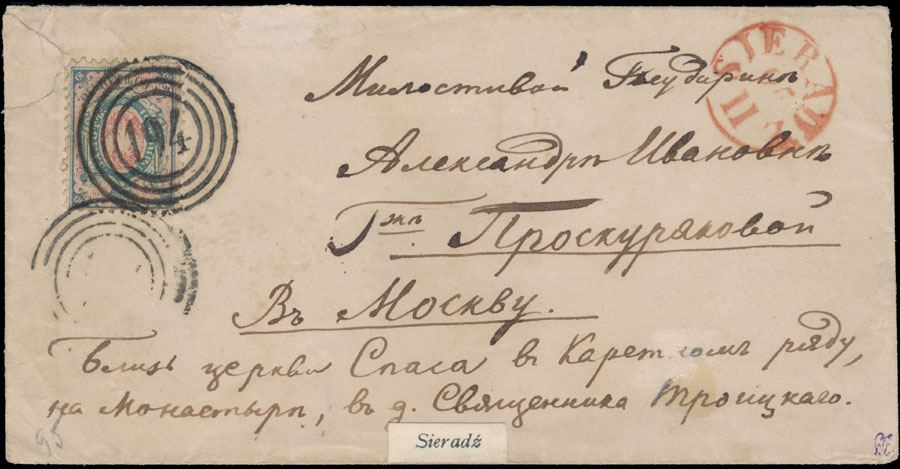 194
SIERADZ
Милостивой Государынѣ
Александрѣ Ивановнѣ
Гжѣ Проскуряковой
Въ Москву.
Близь церкви Спаса въ Каретномъ ряду,
на Монастырѣ, въ д. Священника Троицкаго.
Sieradź